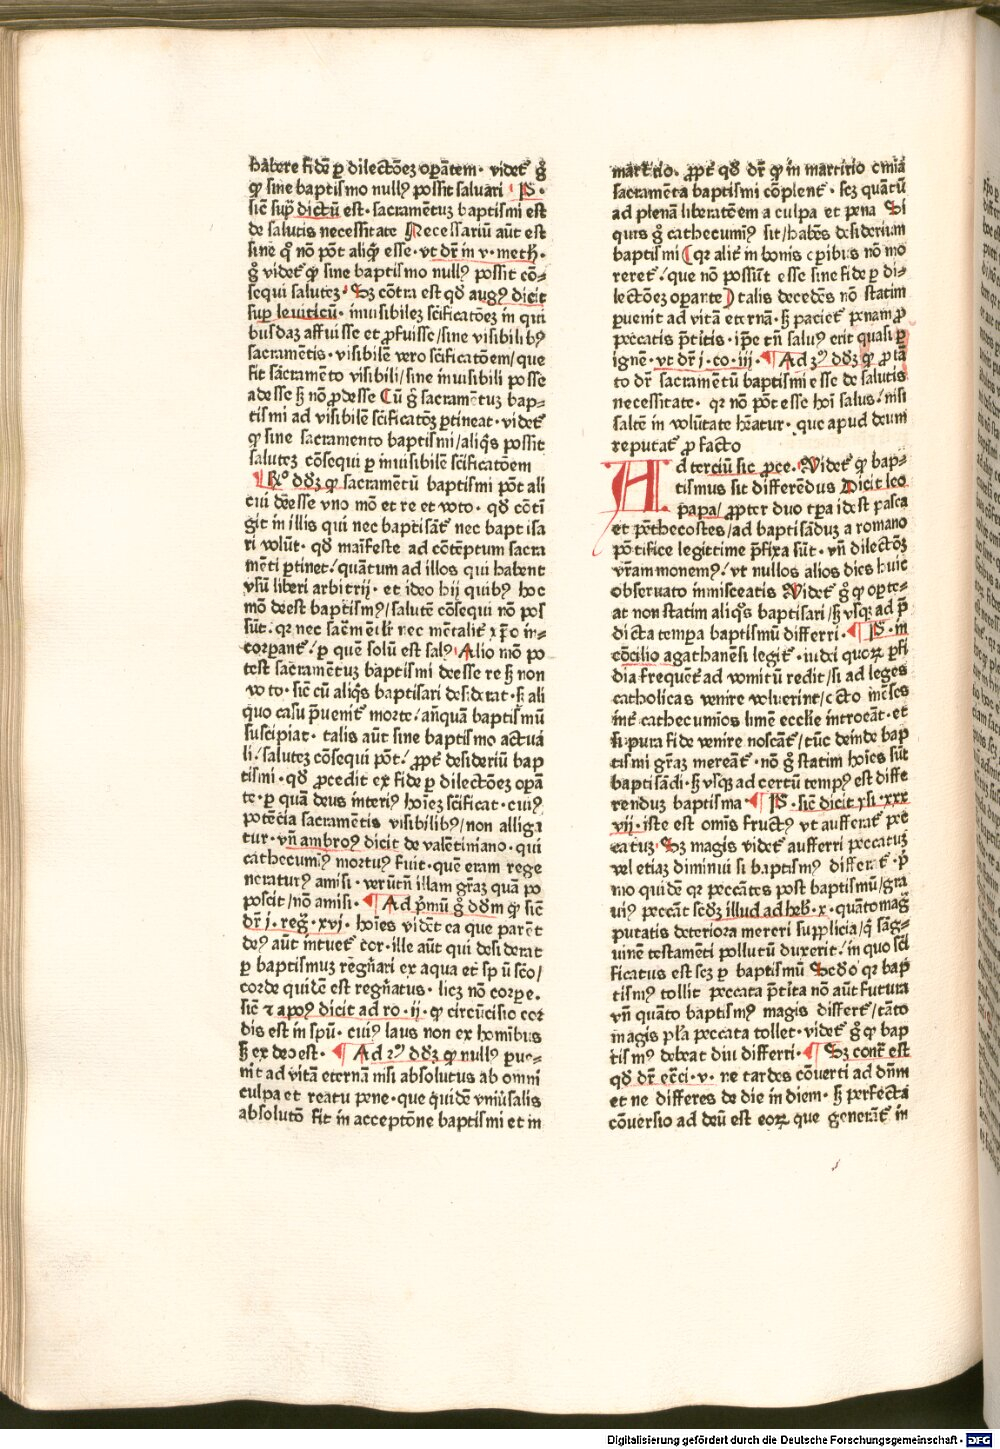 habere fidē ꝑ dilectōeꝫ oꝑātem · videt̄ gͦ
ꝙ sine baptismo nullꝰ possit saluari · ¶ P̄ ·
sic̄ supͣ dictū est · sacramētuꝫ baptismi est
de salutis necessitate Necessariū aūt est
sine qͦ nō pōt aliqͥd esse · vt dr̄ in v · meth̄ ·
gͦ videt̄ ꝙ sine baptismo nullꝰ possit cō⸗
sequi saluteꝫ · Sꝫ cōtra est qđ augꝰ dicit
suꝑ leuiticū · inuisibileꝫ sc̄ificatōeꝫ in qui
busdaꝫ affuisse et ꝓfuisse / sine visibilibꝰ
sacramētis · visibilē vero sc̄ificatōem / que
fit sacramēto visibili / sine inuisibili posse
adesse sꝫ nō ꝓdesse Cū gͦ sacramētuꝫ bap⸗
tismi ad visibilē sc̄ificatōeꝫ ꝑtineat · videt̄
ꝙ sine sacramento baptismi / aliqͥs possit
saluteꝫ cōsequi ꝑ inuisibilē sc̄ificatōem
¶ Rͦ dđꝫ ꝙ sacramētū baptismi pōt ali
cui deesse vno mō et re et voto · qđ cōti
git in illis qui nec baptisāt̄ nec baptisa
ri volūt · qđ maīfeste ad cōtēptum sacra
mēti ꝑtinet / quātum ad illos qui habent
vsū liberi arbitrij · et ideo hij quibꝰ hoc
mō deest baptismꝰ / salutē cōsequi nō pos
sūt · qꝛ nec sacm̄eīlr̄ nec mētalit̄ xp̄o in⸗
corꝑant̄ / ꝑ quē solū est salꝰ Alio mō po
test sacramētuꝫ baptismi deesse re sꝫ non
voto · sic̄ cū aliqͥs baptisari desiderat · sꝫ ali
quo casu p̄uenit̄ morte / anq̄uā baptismū
suscipiat · talis aūt sine baptismo actua
li / saluteꝫ cōsequi pōt / ꝓpt̄ desideriū bap
tismi · qđ ꝓcedit ex fide ꝑ dilectōeꝫ oꝑā
te · ꝑ quā deus interiꝰ hoīeꝫ sc̄ificat · cuiꝰ
potētia sacramētis visibilibꝰ / non alliga
tur · vn̄ ambroꝰ dicit de valētiniano · qui
cathecumīꝰ mortuꝰ fuit · quē eram rege
neraturꝰ amisi · verūtn̄ illam gr̄aꝫ quā po
poscit / nō amisi · ¶ Ad pͥmū gͦ ddm ꝙ sic̄
dr̄ i · reḡ · xvi · hoīes vidēt ea que parēt
deꝰ aūt intuet̄ cor · ille aūt qui desiderat
ꝑ baptismuꝫ regn̄ari ex aqua et sp̄ū sc̄o /
corde quidē est regn̄atus · licꝫ nō corꝑe ·
sic̄ ⁊ apoꝰ dicit ad ro · ij · ꝙ circūcisio cor
dis est in spū̄ · cuiꝰ laus non ex homībus
sꝫ ex deo est · ¶ Ad 2ꝰ dđꝫ ꝙ nullꝰ pue⸗
nit ad vitā eternā nisi absolutus ab omni
culpa et reatu pene · que quidē vniūsalis
absolutō fit in acceptōne baptismi et in
martirio · ꝓpt̄ qđ dr̄ ꝙ in martirio omīa
sacramēta baptismi cōplent̄ · scꝫ quātū
ad plenā liberatōem a culpa et pena Si
quis gͦ cathecumīꝰ sit / habēs desiderium
baptismi ( qꝛ alit̄ in bonis oꝑibus nō mo
reret̄ / que nō possūt esse sine fide ꝑ di⸗
lectōeꝫ oꝑante ) talis decedēs nō statim
ꝑuenit ad vitā eternā · sꝫ paciet̄ penam ꝓ
peccatis p̄titis · ip̄e tn̄ saluꝰ erit quasi ꝑ
ignē · vt dr̄ i · co · iij · ¶ Ad 3ꝰ dđꝫ ꝙ ꝓ tā
to dr̄ sacramētū baptismi esse de salutis
necessitate · qꝛ nō pōt esse hoī salus / nisi
saltē in volūtate hēatur · que apud deum
reputat̄ ꝓ facto
Ad terciū sic ꝓce · Videt̄ ꝙ bap⸗
tismus sit differēdus Dicit leo
papa / ꝓpter duo tꝑa id est pasca
et pēthecostes / ad baptisāduꝫ a romano
pōtifice legittime p̄fixa sūt · vn̄ dilectōꝫ
vr̄am monemꝰ / vt nullos alios dies huic
obseruato inmisceatis Videt̄ gͦ ꝙ opte⸗
at non statim aliqͥs baptisari / sꝫ vsqꝫ ad p̄
dicta tempa baptismū differri · ¶ P̄ · in
cōcilio agathanēsi legit̄ · iudei quoꝝ ꝑfi
dia frequēt̄ ad vomitū redit / si ad leges
catholicas venire voluerint / octo mēses
int̄ cathecumīos limē eccl̄ie introeāt · et
si pura fide venire noscāt̄ / tūc deinde bap
tismi gr̄aꝫ mereāt̄ · nō gͦ statim hoīes sūt
baptisādi · sꝫ vsqꝫ ad certū tempꝰ est diffe
renduꝫ baptisma · ¶ P̄ · sic̄ dicit ysi · xxx
vij · iste est omīs fructꝰ vt aufferat̄ pec
catuꝫ · Sꝫ magis videt̄ aufferri peccatuꝫ
vel etiaꝫ diminui si baptismꝰ differat̄ · pͥ
mo quidē qꝛ peccātes post baptismū / gra
uiꝰ peccāt scđꝫ illud ad heb̄ · x · quātomagͥ
putatis deteriora mereri supplicia / qͥ sāg⸗
uinē testamēti pollutū duxerit / in quo scī
ficatus est scꝫ ꝑ baptismū Sc̄do qꝛ bap
tismꝰ tollit peccata p̄tita nō aūt futura
vn̄ quāto baptismꝰ magis differt̄ / tāto
magis pl̄a peccata tollet · videt̄ gͦ ꝙ bap
tismꝰ debeat diu differri · ¶ Sꝫ contͣ est
qđ dr̄ ecc̄i · v · ne tardes cōuerti ad dn̄m
et ne differes de die in diem · sꝫ perfecta
cōuersio ad deū est eoꝝ que generāt̄ in
Digitalisierung gefördert durch die Deutsche Forschungsgemeinschaft - DFG